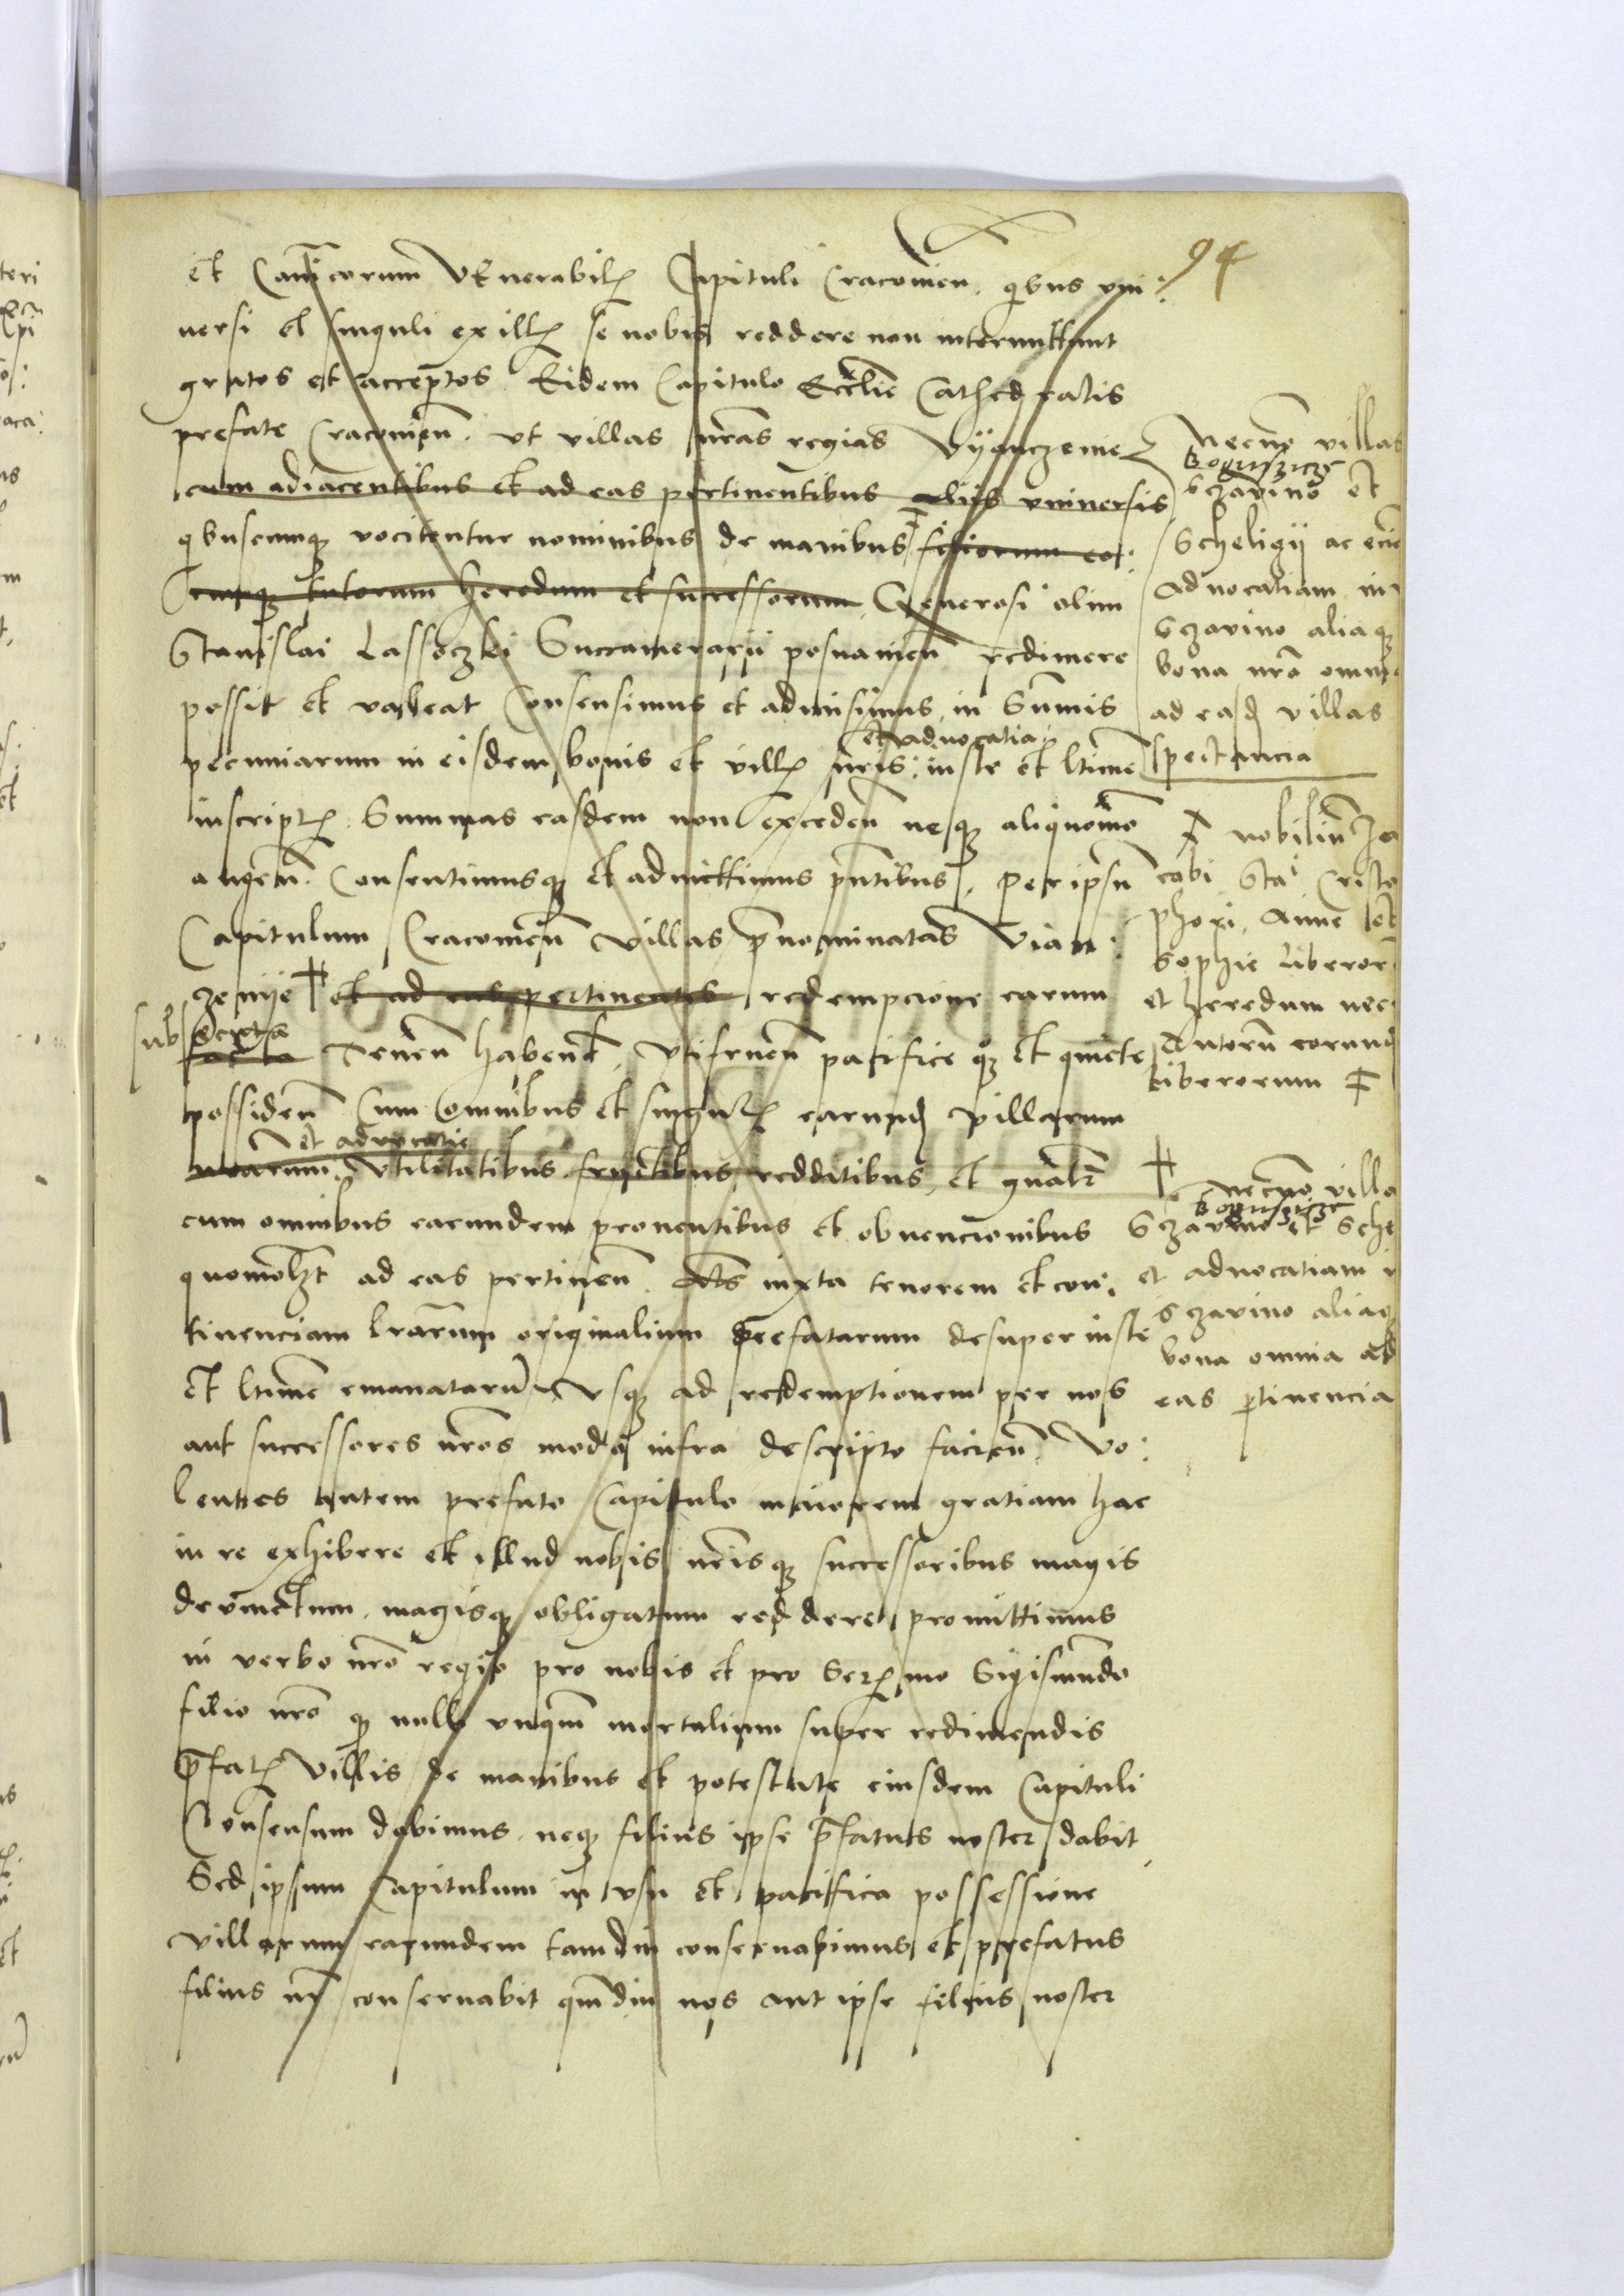 94
et Canicorum Venerabilis Capituli Cracouien. quibus vni:
uersi et singuli ex illis se nobis reddere non intermittunt
gratos et acceptos. Eidem Capitulo Ecclie Cathedralis
prefate Cracouien. vt villas nras regias Vyanczemie
cum adiacentibus et ad eas pertinentibus aliis vniuersis
qbuscumque vocitentur nominibus de manibus filiorum eor:
tutorum heredum et successorum Generosi olim
Stanislai Lassoczki Succamerarii posnanien redimere
possit et valeat Consensimus et admisimus, in Sumis
et aduocatia
pecuniarum in eisdem bonis et villis nris: iuste et ltime
inscriptis. Summas easdem non exceden neque aliquomo
augen. Consentimusque et admittimus pntibus, per ipsu
Capitulum Cracouien villas pnominatas Vian:
zemije et ad eas pertinentes redempcione earum
sub scripta
facta Tenen habend, Vtifruen pacifice que et quiete
possiden Cum Omnibus et singulis earund villarum
et aduocatie
nrarum vtilitatibus fructibus redditibus, et gnalr
cum omnibus earundem prouentibus et obuencionibus
quomolzt ad eas pertinen. iuxta tenorem et con:
tinenciam lrarum originalium prefatarum desuper iuste
et ltime emanataru Vsque ad redemptionem per nos
aut successores nros modo infra descripto facien. Vo:
lentes autem prefato Capitulo maiorem gratiam hac
in re exhibere et illud nobis nrisque successoribus magis
deuinctum, magisque obligatum reddere promittimus
in verbo nro regio pro nobis et pro Sermo Sigismundo
filio nro q nulli vnqm mortalium super redimendis
pfatis Villis de manibus et potestate eiusdem Capituli
Consensum dabimus, neque filius ipse pfatus noster dabit
Sed ipsum Capitulum in vsu et pacifica possessione
villarum earundem tamdiu conseruabimus et prefatus
filius nr conseruabit qmdiu nos aut ipse filius noster
necno villas
Boguszicze
Sczavino et
Scheligij ac
Aduocatiam in
Sczavino aliaque
bona nra omnia
ad easd villas
spectancia
nobiliu Ja
cobi Stai Cristo
phori, Anne et
Sophie liberor
et heredum nec
tutoru eorund
liberorum
necno villa
Boguszicze
Sczavino et Sche
et aduocatiam i
Sczavino aliaq
bona omnia ad
eas ptinencia